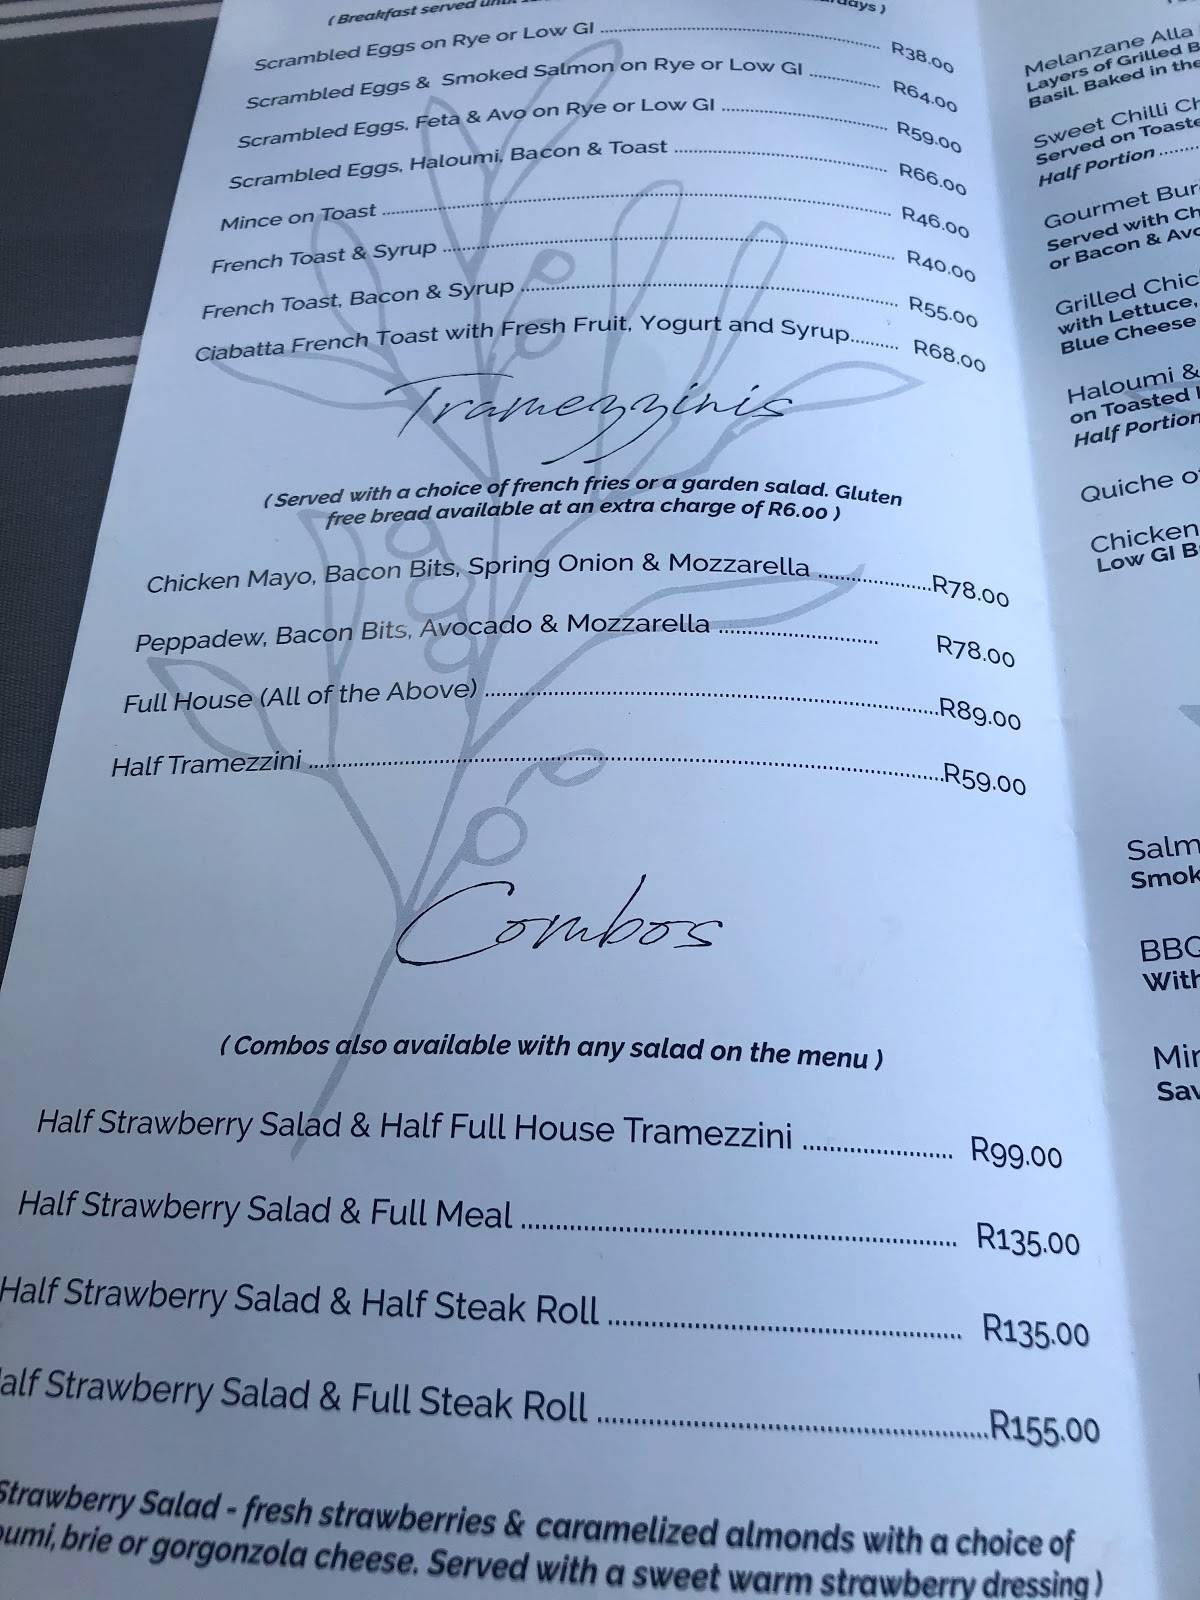 ( Breakfast served until
days )
Scrambled Eggs on Rye or Low GI ........ R38.00
Scrambled Eggs & Smoked Salmon on Rye or Low GI ........ R64.00
Scrambled Eggs, Feta & Avo on Rye or Low GI ........ R59.00
Scrambled Eggs, Haloumi, Bacon & Toast ........ R66.00
Mince on Toast ........ R46.00
French Toast & Syrup ........ R40.00
French Toast, Bacon & Syrup ........ R55.00
Ciabatta French Toast with Fresh Fruit, Yogurt and Syrup ........ R68.00
Tramezzinis
( Served with a choice of french fries or a garden salad. Gluten
free bread available at an extra charge of R6.00 )
Chicken Mayo, Bacon Bits, Spring Onion & Mozzarella ........ R78.00
Peppadew, Bacon Bits, Avocado & Mozzarella ........ R78.00
Full House (All of the Above) ........ R89.00
Half Tramezzini ........ R59.00
Combos
( Combos also available with any salad on the menu )
Half Strawberry Salad & Half Full House Tramezzini ........ R99.00
Half Strawberry Salad & Full Meal ........ R135.00
Half Strawberry Salad & Half Steak Roll ........ R135.00
alf Strawberry Salad & Full Steak Roll ........ R155.00
Strawberry Salad - fresh strawberries & caramelized almonds with a choice of
oumi, brie or gorgonzola cheese. Served with a sweet warm strawberry dressing )
Melanzane Alla
Layers of Grilled B
Basil. Baked in the
Sweet Chilli Ch
Served on Toaste
Half Portion ........
Gourmet Bur
Served with Ch
or Bacon & Avo
Grilled Chic
with Lettuce,
Blue Cheese
Haloumi &
on Toasted
Half Portion
Quiche o
Chicken
Low GI B
Salm
Smok
BBQ
With
Min
Sav